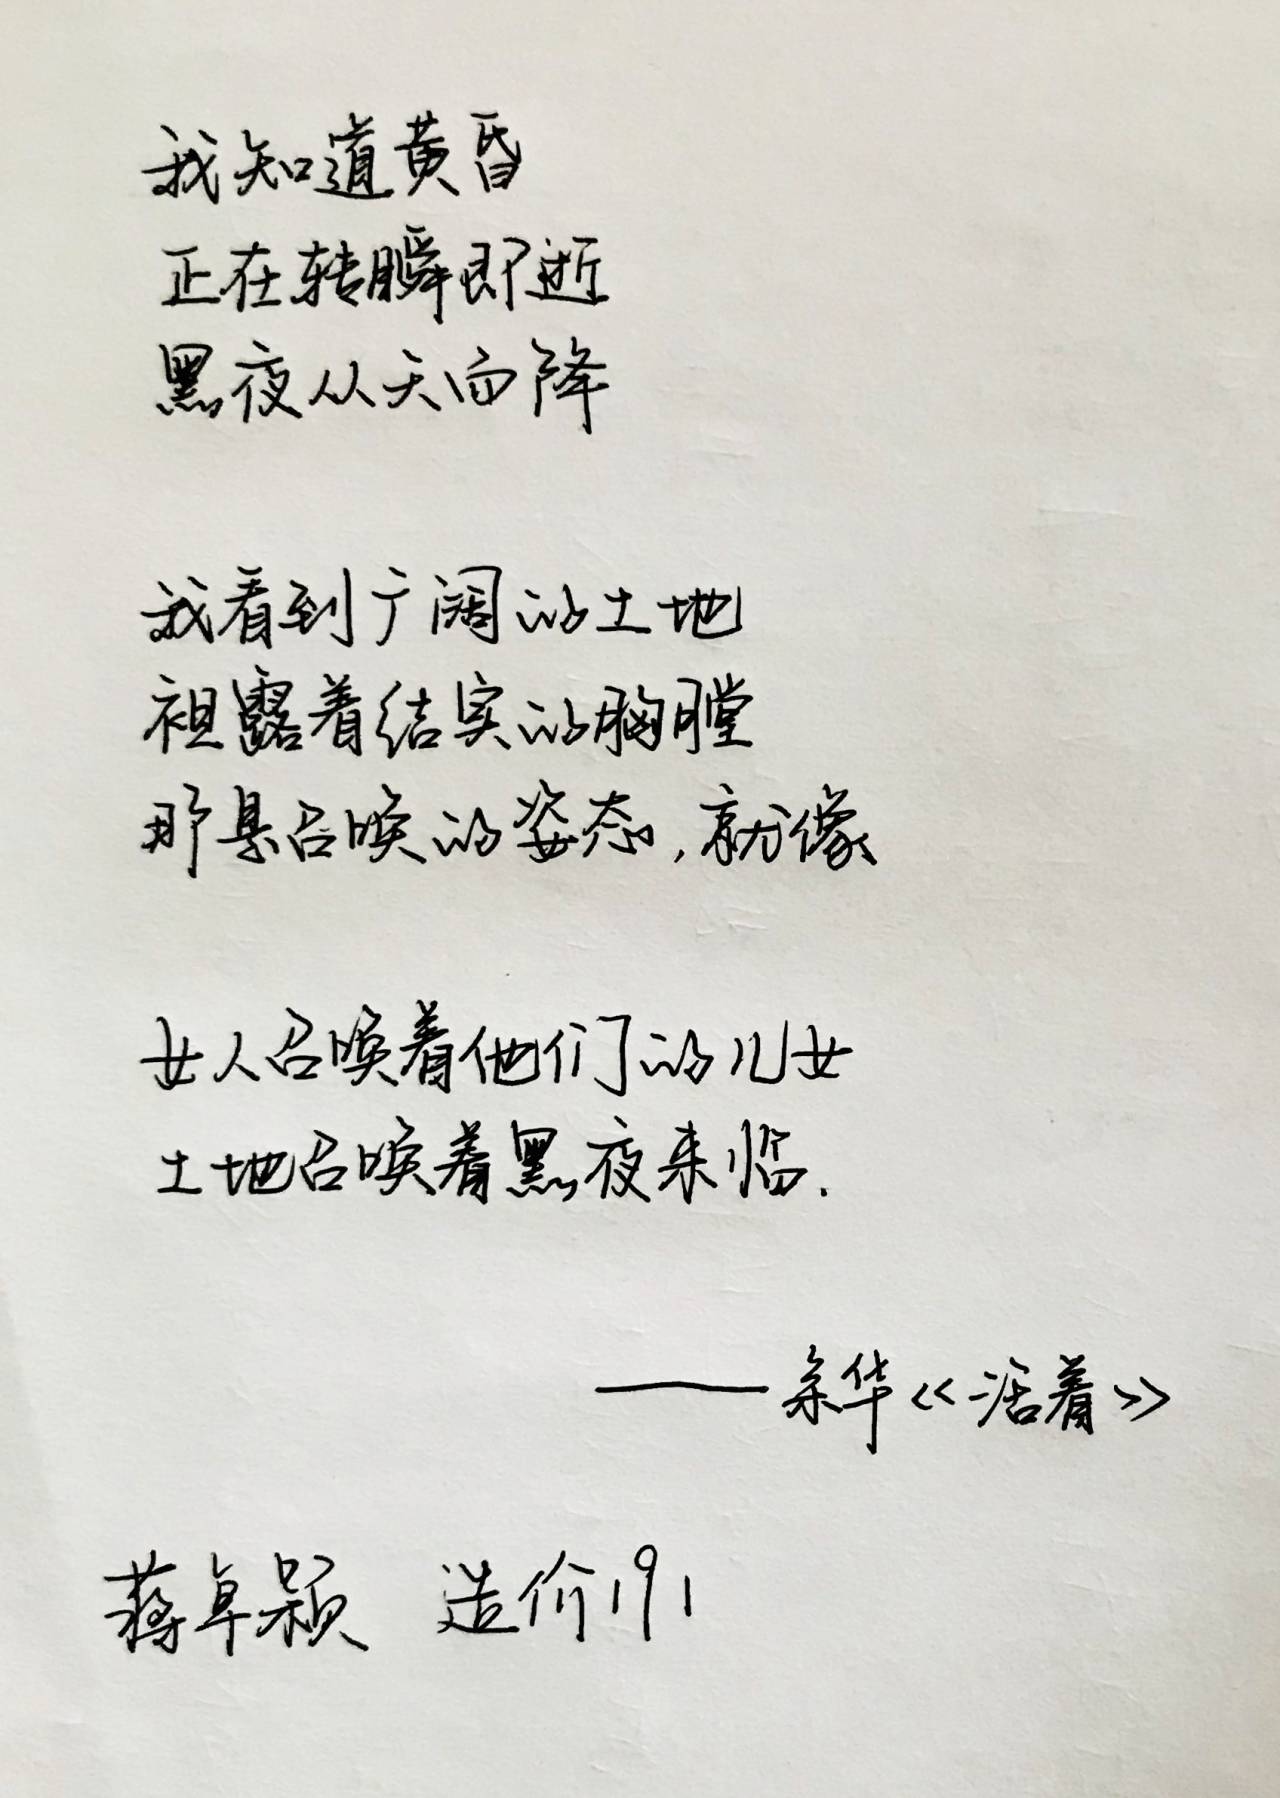 我知道黄昏
正在转瞬即逝
黑夜从天而降
我看到广阔的土地
袒露着结实的胸膛
那是召唤的姿态,就像
女人召唤着他们的儿女
土地召唤着黑夜来临.
——余华《活着》
蒋卓颖 造价191